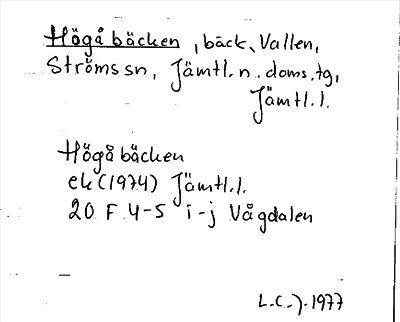 Högåbäcken, bäck, Vallen,
Ströms sn, Jämtl. n. doms. tg,
Jämtl. l.
Högåbäcken
ek (1974) Jämtl. l.
20 F 4-5 i-j Vågdalen
L.C-J. 1977